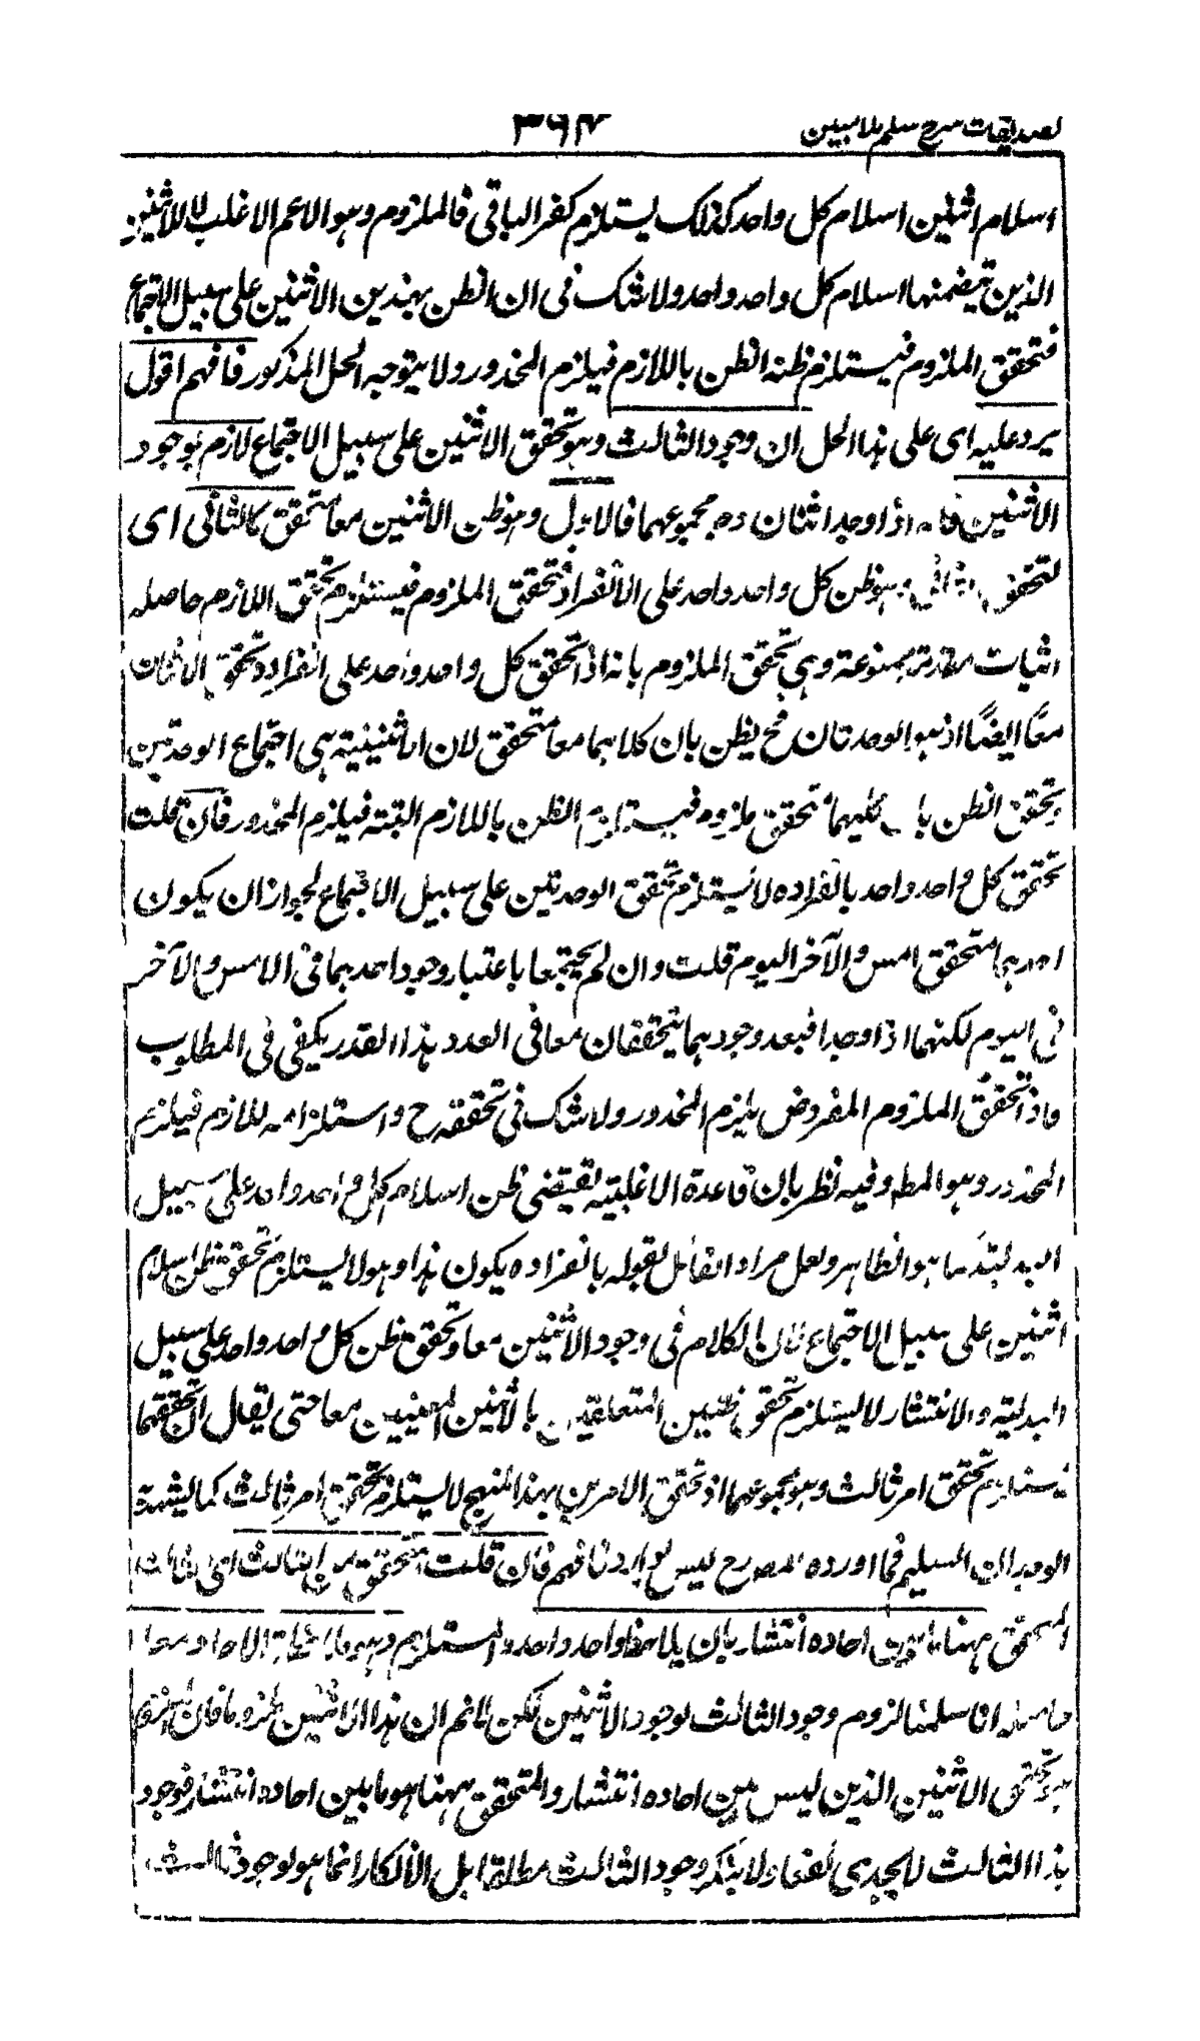 تصدیقات شرح سلم ملا مبین
۳۶۴
اسلام اثنین اسلام کل واحد کذلک یستلزم کفر الباقی فالملزوم وہو الاعم الاغلب لا للاثنین
الذین تیضمنہا اسلام کل واحد واحد ولا شک فی ان الظن بہذین الاثنین علی سبیل الاجتماع
فتحقق الملزوم فیستلزم ظنہ الظن باللازم فیلزم المحذور ولا یتوجہ الحل المذکور فافہم اقول
یرد علیہ ای علی ہذا الحل ان وجود الثالث وہو تحقق الاثنین علی سبیل الاجتماع لازم بوجود
الاثنین فانہ اذا وجد اثنان وجد مجموعہما فالاول وہو ظن الاثنین معا متحقق کالثانی ای
لتحقق الثانی وہو ظن کل واحد واحد علی الانفراد فتحقق الملزوم فیستلزم تحقق اللازم حاصلہ
اثبات مقدمۃ ممنوعۃ وہی تحقق الملزوم بانہ اذا تحقق کل واحد واحد علی انفراد وتحقق الاثنان
معًا ایضًا اذ ہو الوحدتان فح یظن بان کلاہما معا متحقق لان الاثنینیۃ ہی اجتماع الوحدتین
وتحقق الظن بان کلیہما تحقق ملزومہ فیستلزم الظن باللازم البتۃ فیلزم المحذور فان قلت
تحقق کل واحد واحد بانفرادہ لا یستلزم تحقق الوحدتین علی سبیل الاجتماع لجواز ان یکون
احدہما متحقق امس والآخر الیوم قلت وان لم یجتمعا باعتبار وجود احدہما فی الامس والآخر
فی الیوم لکنہما اذا وجدا فبعد وجودہما یتحققان معا فی العدد ہذا القدر یکفی فی المطلوب
واذا تحقق الملزوم المفروض یلزم المحذور ولا شک فی تحققہ ح واستلزامہ للازم فیلزم
المحذور وہو المطلم وفیہ نظر بان قاعدۃ الاغلبیۃ تقیضی ظن اسلام کل واحد واحد علی سبیل
البدلیۃ کما ہو الظاہر ولعل مراد القائل بقولہ بانفرادہ یکون ہذا وہو لا یستلزم تحقق ظن اسلام
اثنین علی سبیل الاجتماع فان الکلام فی وجود الاثنین معا وتحقق ظن کل واحد واحد علی سبیل
البدلیۃ والانتشار لا یستلزم تحقق ظنین المتعلقین بالاثنین المعینین معا حتی یقال ان تحققہما
یستلزم تحقق امر ثالث وہو مجموعہما اذ تحقق الامرین بہذا النہج لا یستلزم تحقق امر ثالث کما یشہد
الوجدان السلیم فما اوردہ المصرح لیس بوارد فافہم فان قلت المتحقق من الثالث ای
المتحقق ہہنا ما بین احادہ انتشار بان یلاحظ واحد واحد والمستلزم وہو الاحاد معا
حاصلہ انا سلمنا لزوم وجود الثالث لوجود الاثنین لکن لا نم ان ہذا الاثنین ملزوما فان الملزوم
ہو تحقق الاثنین الذین لیس بین احادہ انتشار والمتحقق ہہنا ہو ما بین احادہ انتشار فوجود
ہذا الثالث لا یجدی نفعا ولا ینکر وجود الثالث مطلقا بل الانکار انما ہو لوجود ثالث